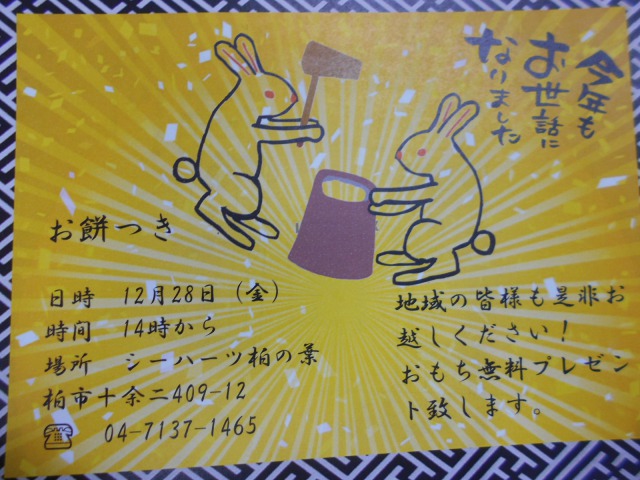 今年も
お世話に
なりました
お餅つき
日時　12月28日（金）
時間　14時から
場所　シーハーツ柏の葉
柏市十余二409-12
04-7137-1465
地域の皆様も是非お
越しください！
おもち無料プレゼン
ト致します。